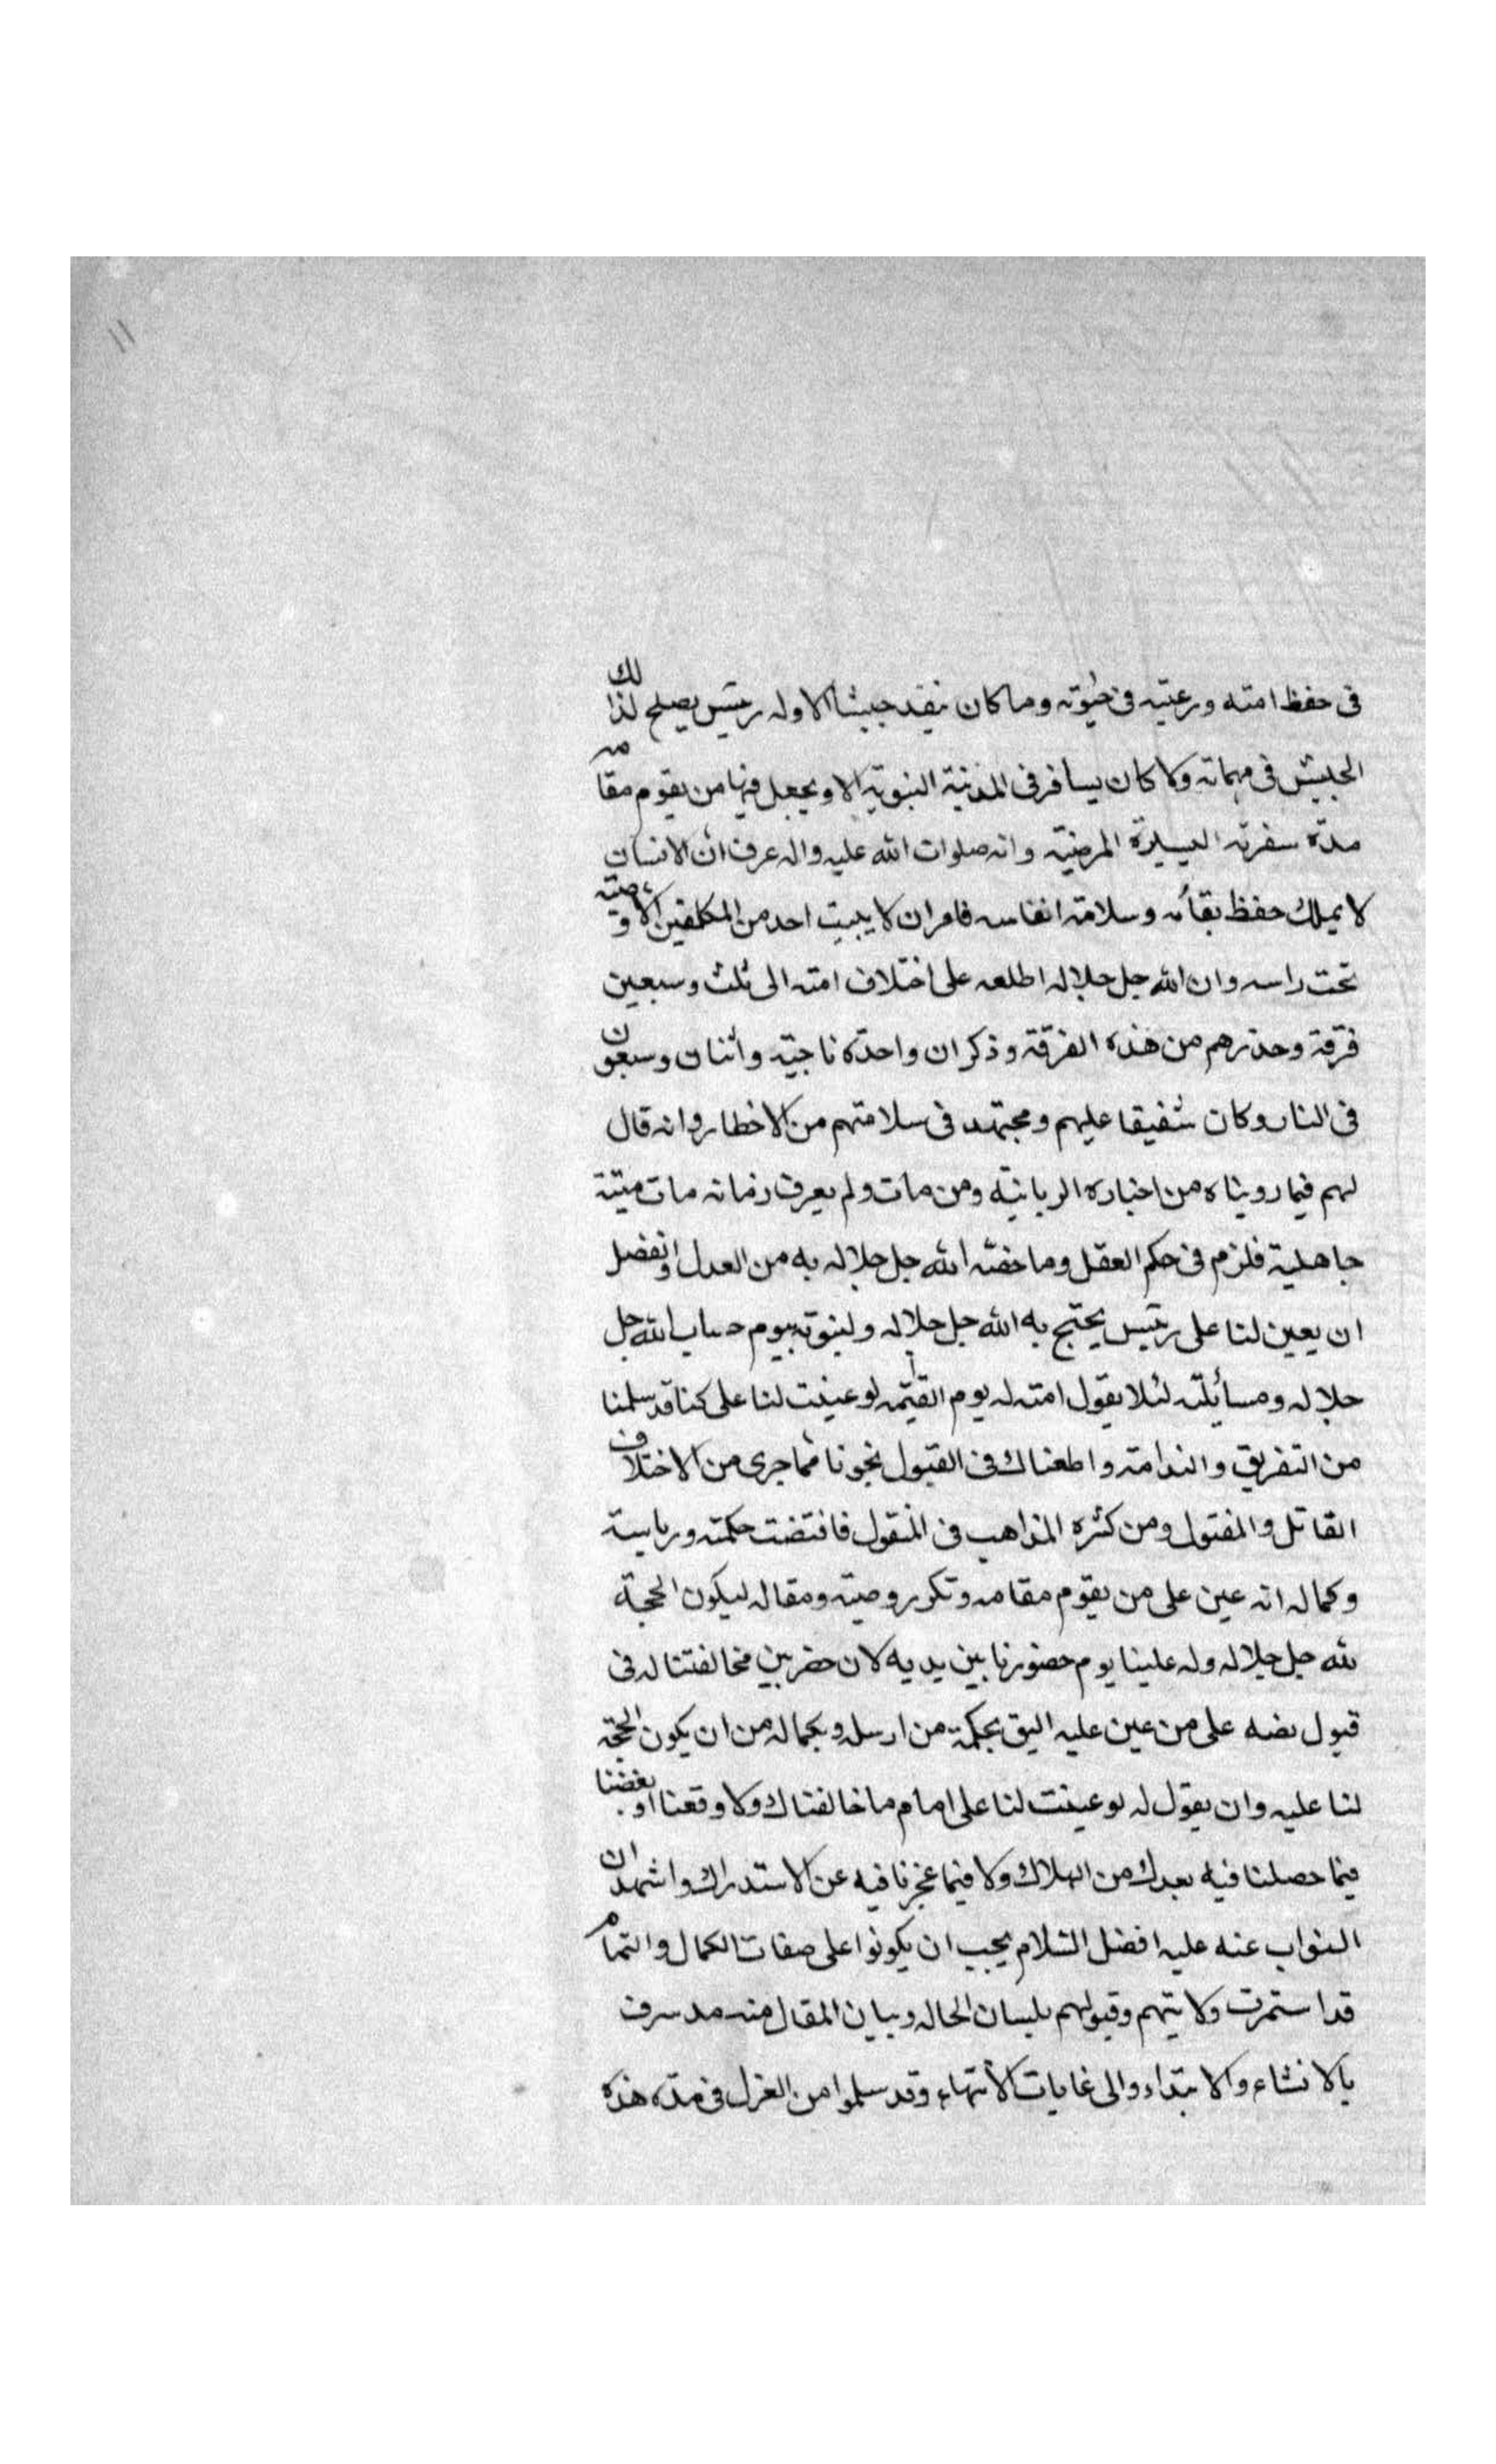 ١١
فى حفظ امته ورعيته فى حيوته وما كان ينفد جيشا الا وله رئيس يصلح لذلك
الجيش فى مهماته ولا كان يسافر فى المدنية النبوية الا ويجعل فيها من يقوم مقامه
مدة سفرته اليسيرة المرضية وانه صلوات الله عليه واله عرف ان الانسان
لا يملك حفظ بقائه وسلامة انفاسه فامر ان لا يبيت احد من المكلفين الا ووصيته
تحت راسه وان الله جل جلاله اطلعه على اختلاف امته الى ثلث وسبعين
فرقة وحذرهم من هذه الفرقة وذكر ان واحدة ناجية واثنان وسبعون
فى النار وكان شفيقا عليهم ومجتهد فى سلامتهم من الاخطار وانه قال
لهم فيما رويناه من اخباره الربانية ومن مات ولم يعرف زمانه مات ميتة
جاهلية فلزم فى حكم العقل وما خصه الله جل جلاله به من العدل والفضل
ان يعين لنا على رئيس يحتج به الله جل جلاله ولنبوته بيوم حساب الله جل
جلاله ومسائلته لئلا يقول امته له يوم القيمة لو عينت لنا على كنا قد سلمنا
من التفريق والندامة واطعناك فى القبول نجونا مما جرى من الاختلاف
القاتل والمقتول ومن كثره المذاهب فى المنقول فاقتضت حكمته ورياسة
وكماله انه عين على من يقوم مقامه وتكرر وصيته ومقاله ليكون الحجة
لله جل جلاله وله علينا يوم حضورنا بين يديه لان حضر بين مخالفتنا له فى
قبول نصه على من عين عليه اليق بحكمة من ارسله وبكماله من ان يكون الحجة
لنا عليه وان يقول له لو عينت لنا على امام ما خالفناك ولا وقعنا او بعضنا
فيما حصلنا فيه بعدك من الهلاك ولا فيما عجزنا فيه عن الاستدراك واشهد ان
النواب عنه عليه افضل السلام يجب ان يكونوا على صفات الكمال والتمام
قد استمرت ولايتهم وقبولهم بلسان الحاله وبيان المقال منه مد سرف
بالانشاء والابتداء والى غايات الانتهاء وقد سلموا من العزل فى مدة هذه